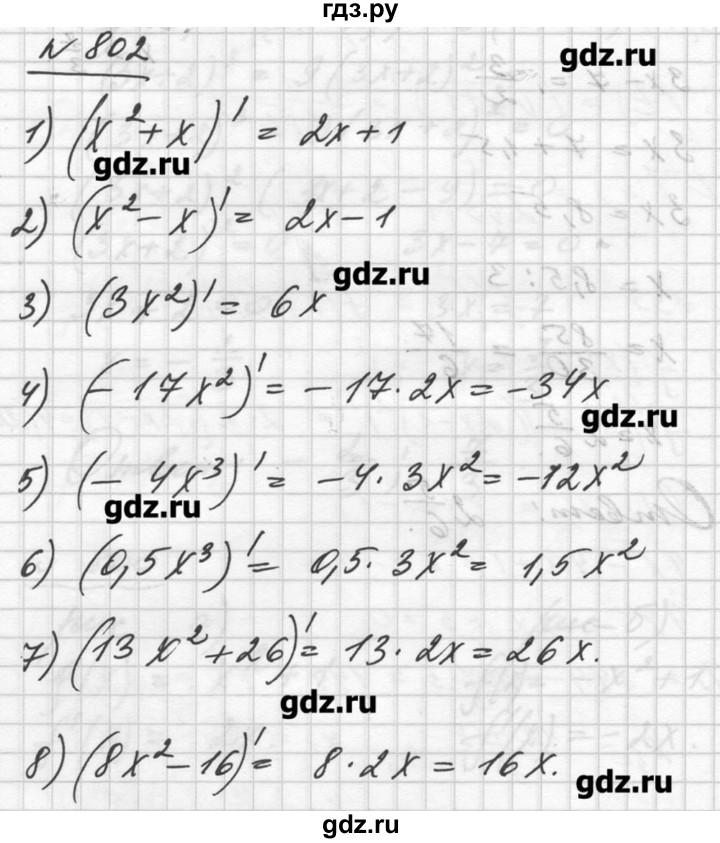 гдз.ру
N 802
gdz.ru
1) (x² + x)' = 2x + 1
gdz.ru
2) (x² - x)' = 2x - 1
gdz.ru
3) (3x²)' = 6x
4) (- 17x²)' = - 17 · 2x = - 34x
gdz.ru
5) (- 4x³)' = - 4 · 3x² = - 12x²
gdz.ru
6) (0,5x³)' = 0,5 · 3x² = 1,5x²
7) (13x² + 26)' = 13 · 2x = 26x.
gdz.ru
8) (8x² - 16)' = 8 · 2x = 16x.
gdz.ru
gdz.ru